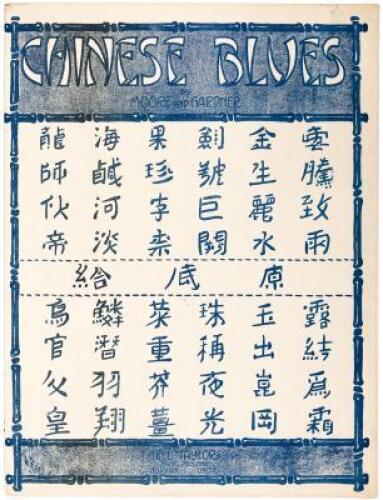 CHINESE BLUES
BY
MOORE AND GARDNER
雲騰致雨
金生麗水
劍號巨闕
果珍李柰
海鹹河淡
龍師伙帝
原底給
露結爲霜
玉出崑岡
珠稱夜光
菜重芥薑
鱗潛羽翔
鳥官父皇
TELL TAYLOR